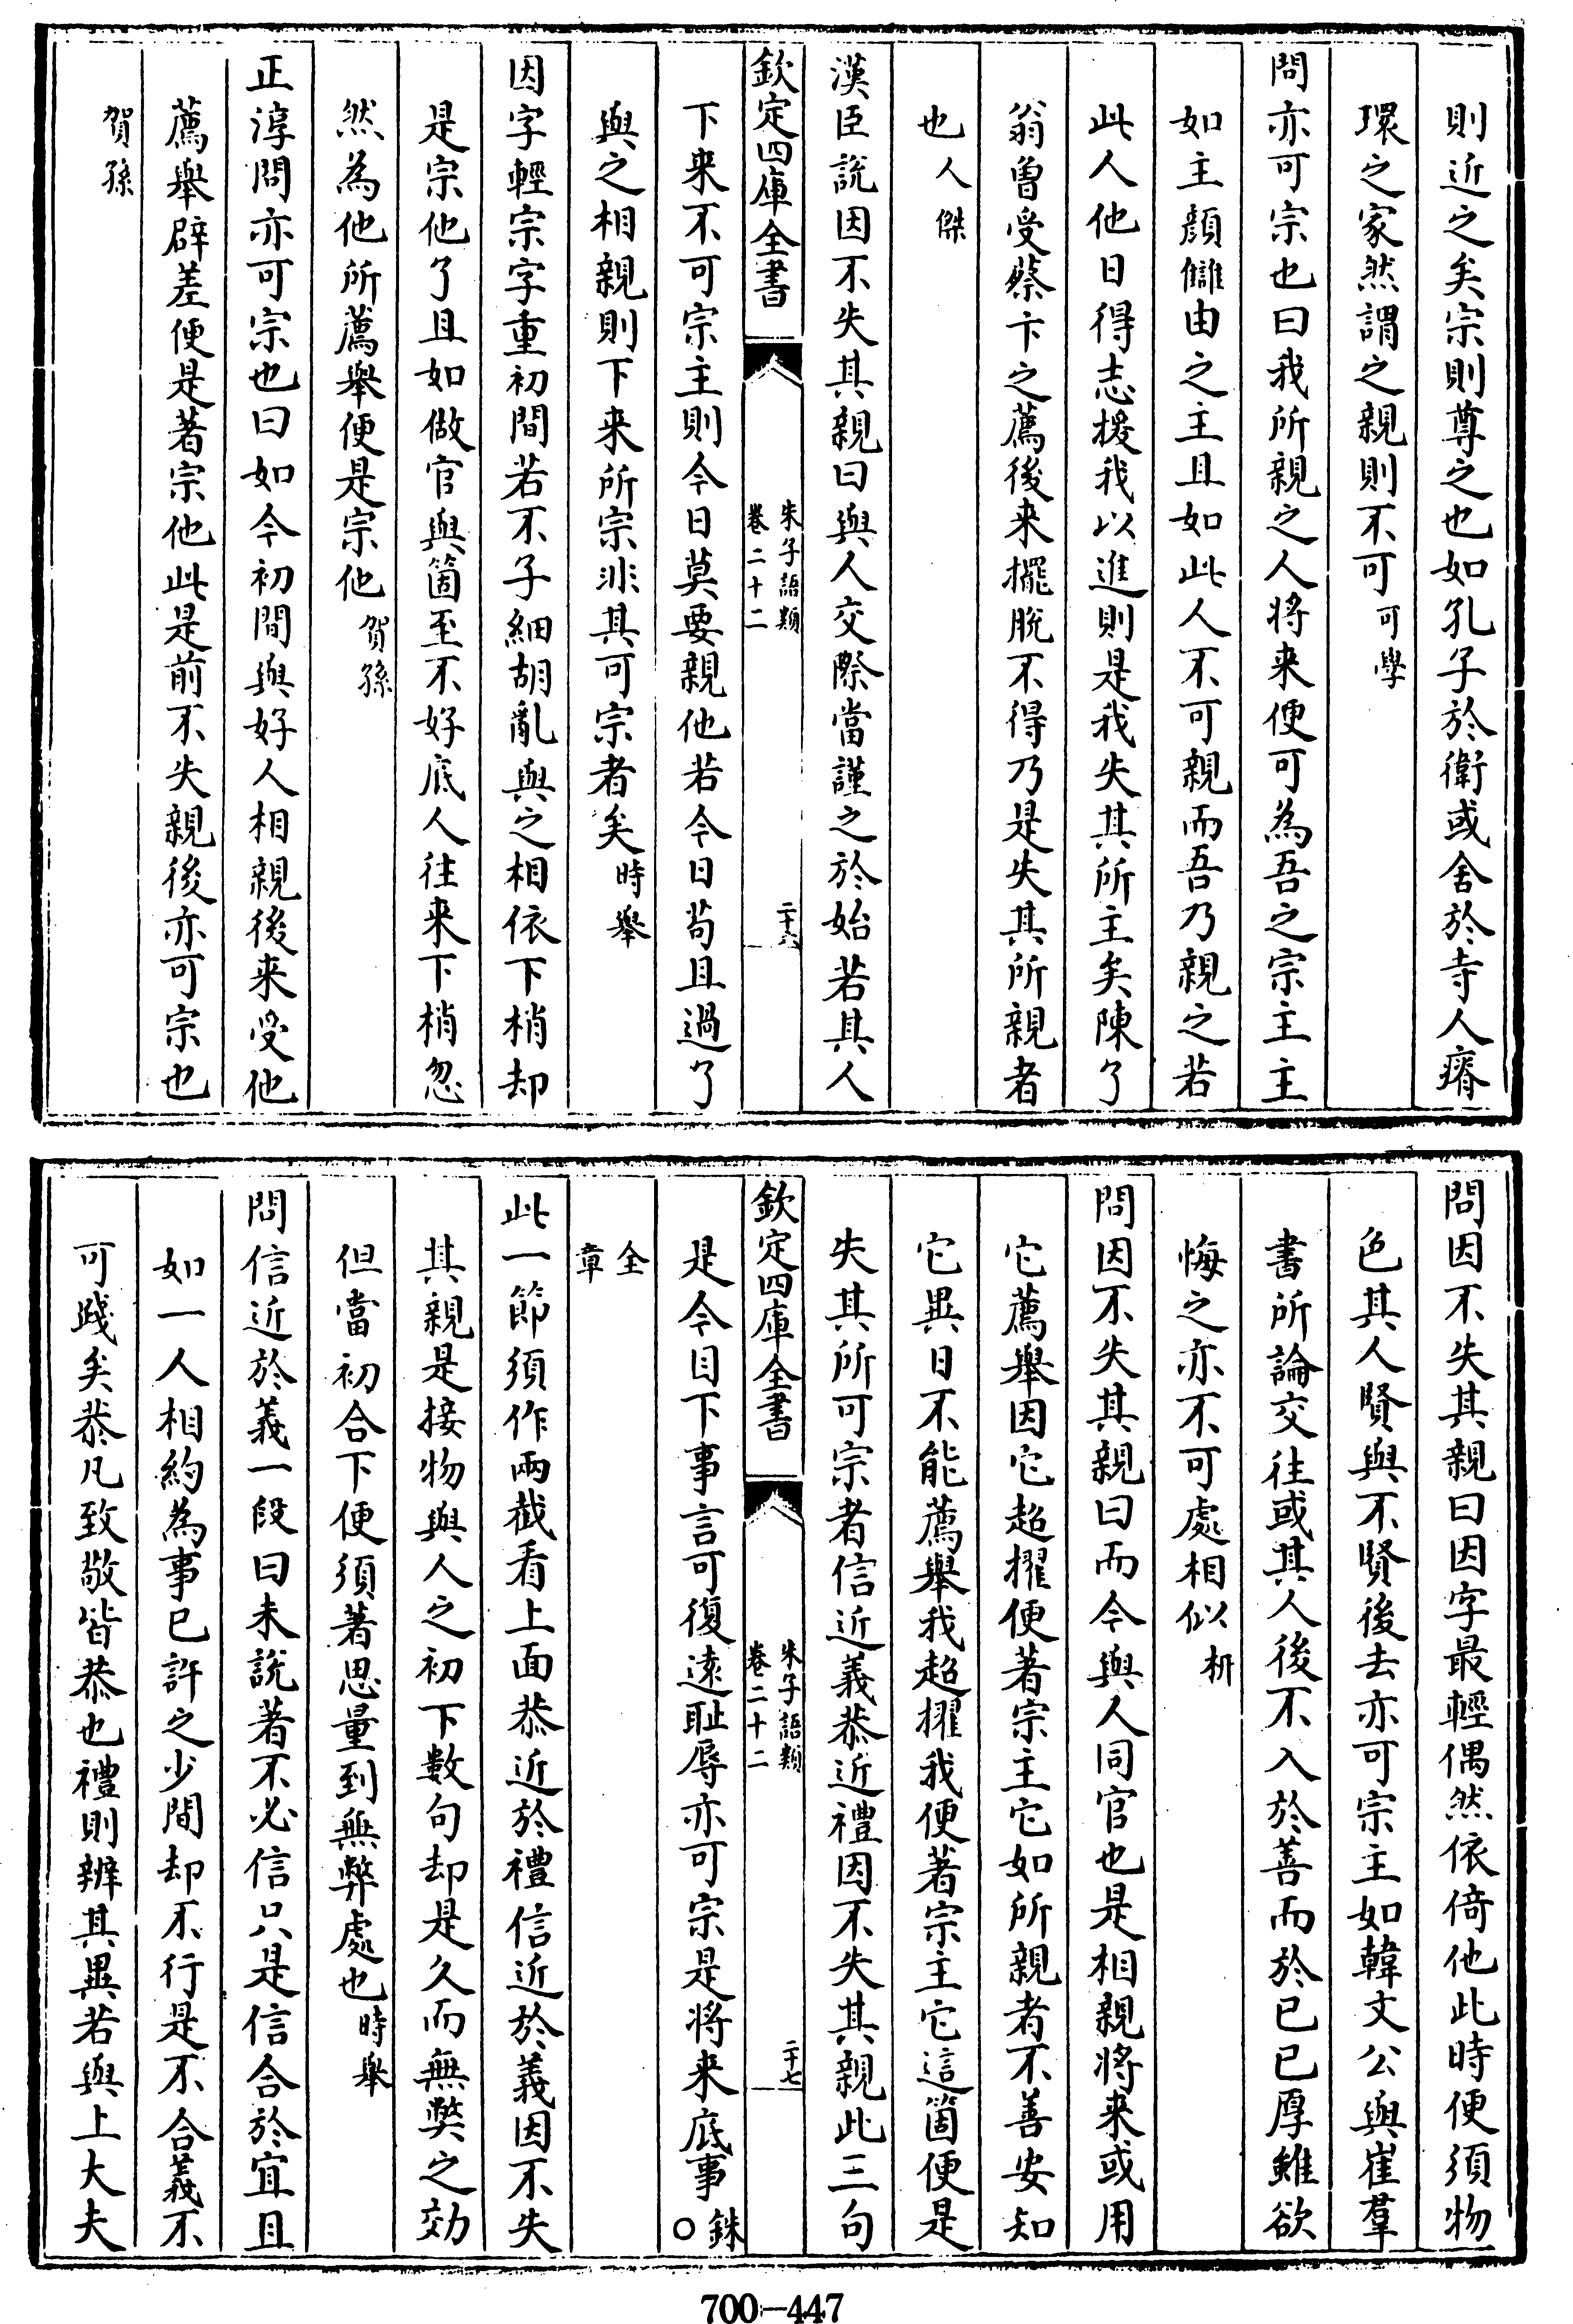 則近之矣宗則尊之也如孔子於衛或舍於寺人瘠
環之家然謂之親則不可可學
問亦可宗也曰我所親之人将来便可為吾之宗主主
如主顔讎由之主且如此人不可親而吾乃親之若
此人他日得志援我以進則是我失其所主矣陳了
翁曽受蔡卞之薦後来擺脱不得乃是失其所親者
也人傑
漢臣說因不失其親曰與人交際當謹之於始若其人
欽定四庫全書
朱子語類
卷二十二
二十六
下来不可宗主則今日莫要親他若今日苟且過了
與之相親則下来所宗非其可宗者矣時舉
因字輕宗字重初間若不子細胡亂與之相依下梢却
是宗他了且如做官與箇至不好底人往来下梢忽
然為他所薦舉便是宗他賀孫
正淳問亦可宗也曰如今初間與好人相親後来受他
薦舉辟差便是著宗他此是前不失親後亦可宗也
賀孫
問因不失其親曰因字最輕偶然依倚他此時便須物
色其人賢與不賢後去亦可宗主如韓文公與崔羣
書所論交往或其人後不入於善而於已已厚雖欲
悔之亦不可處相似枅
問因不失其親曰而今與人同官也是相親将来或用
它薦舉因它超擢便著宗主它如所親者不善安知
它異日不能薦舉我超擢我便著宗主它這箇便是
失其所可宗者信近義恭近禮因不失其親此三句
欽定四庫全書
朱子語類
卷二十二
二十七
是今目下事言可復遠耻辱亦可宗是将来底事銖○
全章
此一節須作兩截看上面恭近於禮信近於義因不失
其親是接物與人之初下數句却是久而無獘之効
但當初合下便須著思量到無弊處也時舉
問信近於義一段曰未說著不必信只是信合於宜且
如一人相約為事已許之少間却不行是不合義不
可踐矣恭凡致敬皆恭也禮則辨其異若與上大夫
700-447